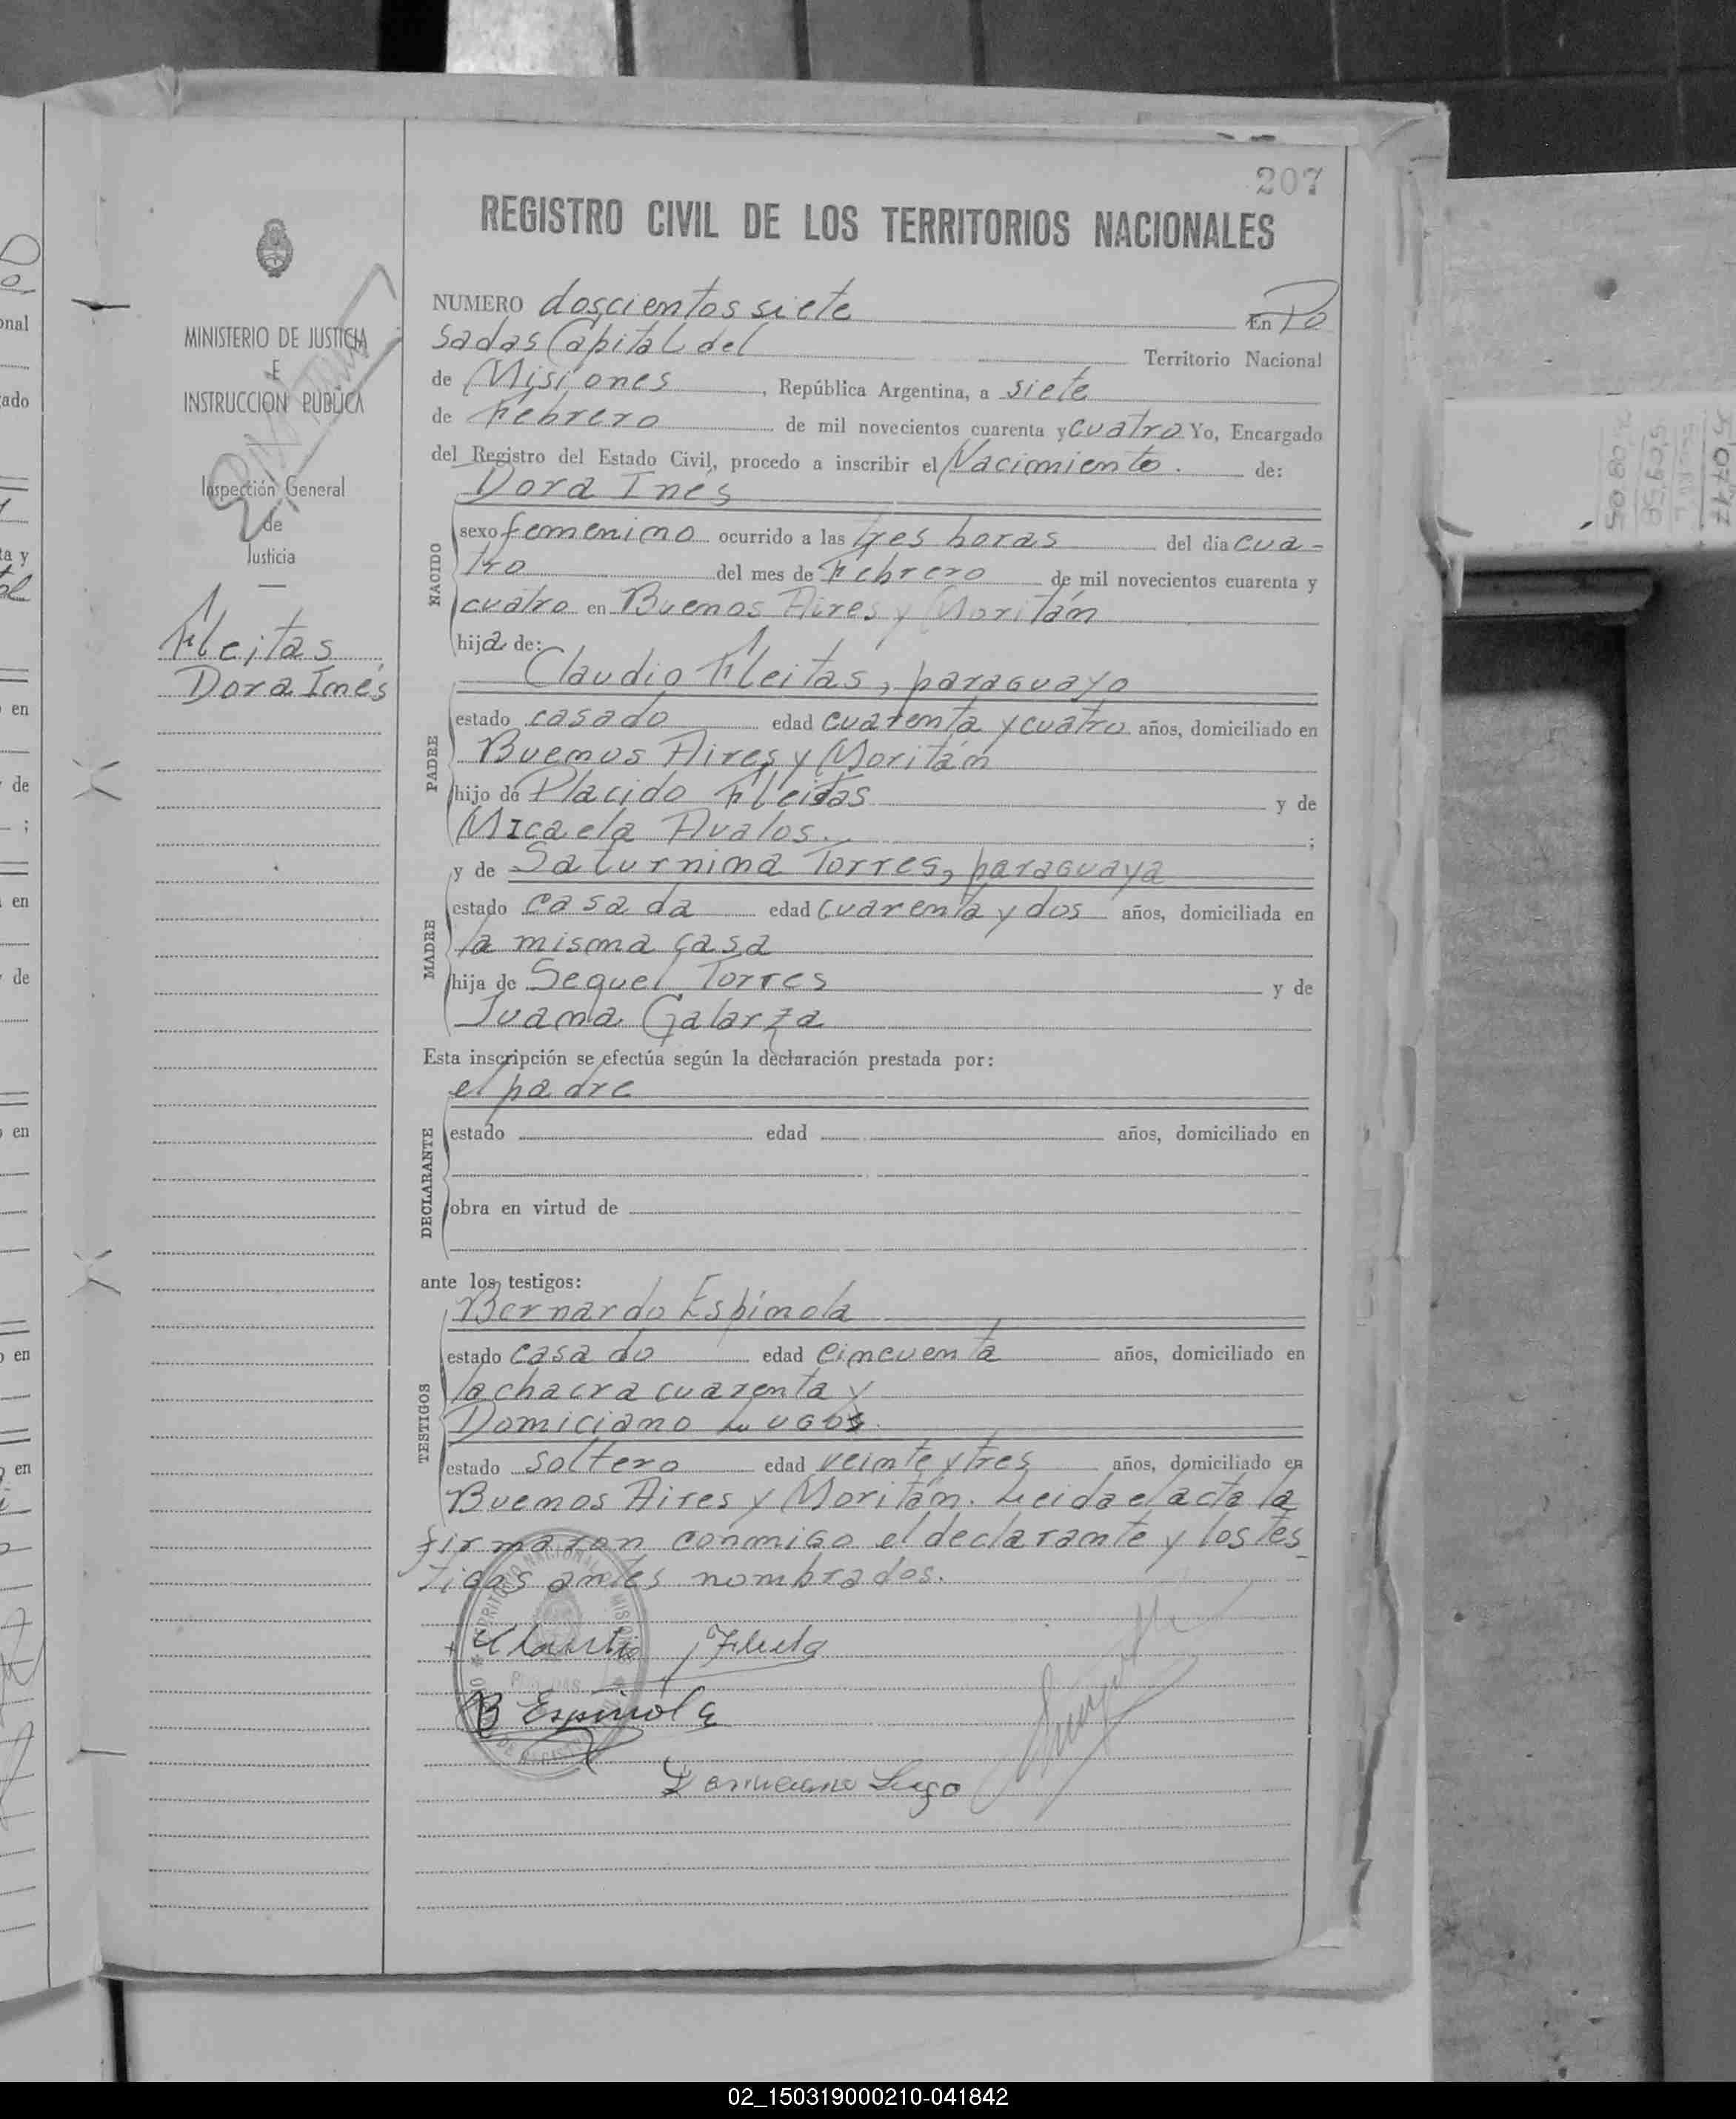 207
REGISTRO CIVIL DE LOS TERRITORIOS NACIONALES
MINISTERIO DE JUSTICIA
E
INSTRUCCION PUBLICA
Inspección General
de
Justicia
Fleitas,
Dora Ines
NUMERO doscientos siete En Po
sadas Capital del Territorio Nacional
de Misiones, República Argentina, a siete
de Febrero de mil novecientos cuarenta y cuatro Yo, Encargado
del Registro del Estado Civil, procedo a inscribir el Nacimiento. de:
NACIDO
Dora Ines
sexo femenino ocurrido a las tres horas del día cua-
tro del mes de Febrero de mil novecientos cuarenta y
cuatro en Buenos Aires y Moritán
hija de:
PADRE
Claudio Fleitas, paraguayo
estado casado edad cuarenta y cuatro años, domiciliado en
Buenos Aires y Moritán
hijo de Placido Fleitas y de
Micaela Avalos. ;
MADRE
y de Saturnina Torres, paraguaya
estado casada edad cuarenta y dos años, domiciliada en
la misma casa
hija de Sequel Torres y de
Juana Galarza
Esta inscripción se efectúa según la declaración prestada por:
DECLARANTE
el padre
estado edad años, domiciliado en
obra en virtud de
ante los testigos:
TESTIGOS
Bernardo Espinola
estado casado edad cincuenta años, domiciliado en
la chacra cuarenta y
Domiciano Lugo.
estado soltero edad veinte y tres años, domiciliado en
Buenos Aires y Moritán. Leida el acta la
firmaron conmigo el declarante y los tes
tigos antes nombrados.
Claudio Fleita
B Espinola
Domiciano Lugo
02_150319000210-041842